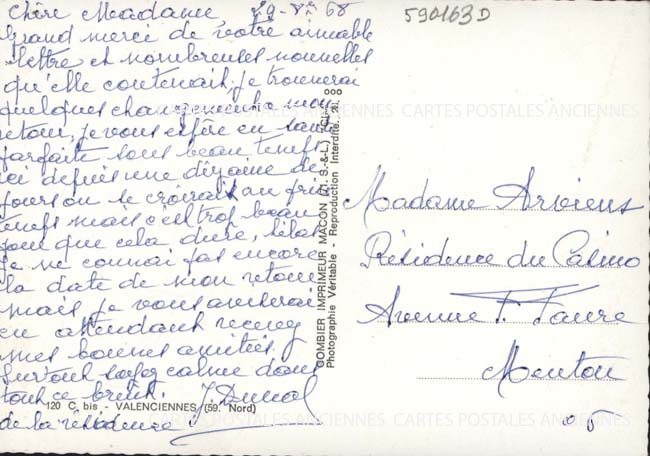 Chère Madame, 29-8-68
Grand merci de votre aimable
lettre et nombreuses nouvelles
qu'elle contenait, je trouverai
quelques changements à mon
retour, je vous espère en santé
parfaite sous beau temps
ici depuis une dizaine de
jours on se croirait au prin
temps mais c'est trop beau
pour que cela dure, hélas
Je ne connai pas encore
la date de mon retour
mais je vous
en attendant recevez
mes bonnes amitiés.
Surtout soyez calme dans
tout ce bruit. J Duval
de la résidence
590163D
CARTES POSTALES ANCIENNES CARTES POSTALES ANCIENNES
COMBIER IMPRIMEUR MACON (T.-S.-&-L.)
Photographie Véritable - Reproduction Interdite.
120 C. bis - VALENCIENNES (59. Nord)
Madame
Résidence du Casino
Avenue F. Faure
Menton
06
CARTES POSTALES ANCIENNES CARTES POSTALES ANCIENNES